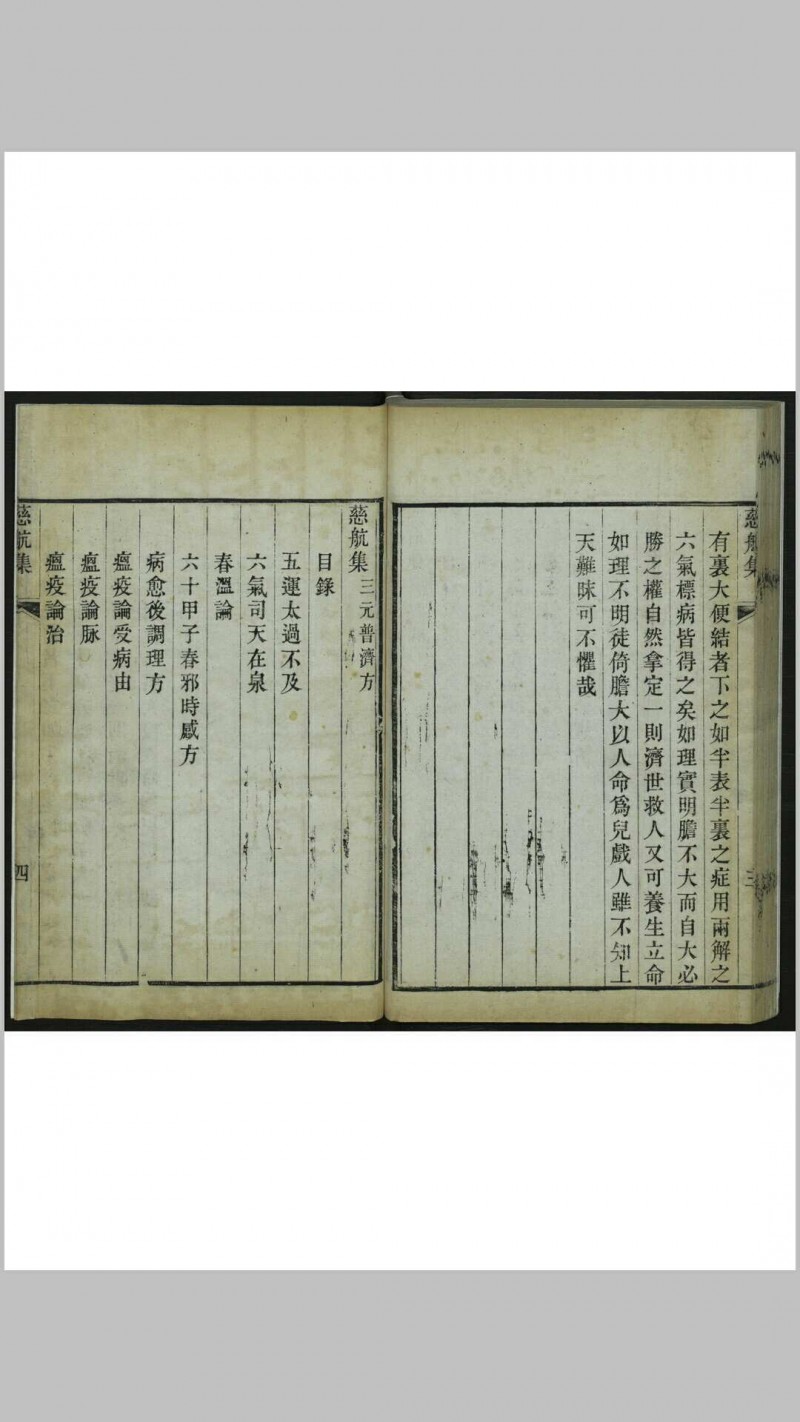 慈航集
三
有裏大便結者下之如半表半裏之症用兩解之
六氣標病皆得之矣如理實明膽不大而自大必
勝之權自然拿定一則濟世救人又可養生立命
如理不明徒倚膽大以人命爲兒戲人雖不知上
天難昧可不懼哉
慈航集三元普濟方
目錄
五運太過不及
六氣司天在泉
春溫論
六十甲子春邪時感方
病愈後調理方
瘟疫論受病由
瘟疫論脉
瘟疫論治
慈航集
四